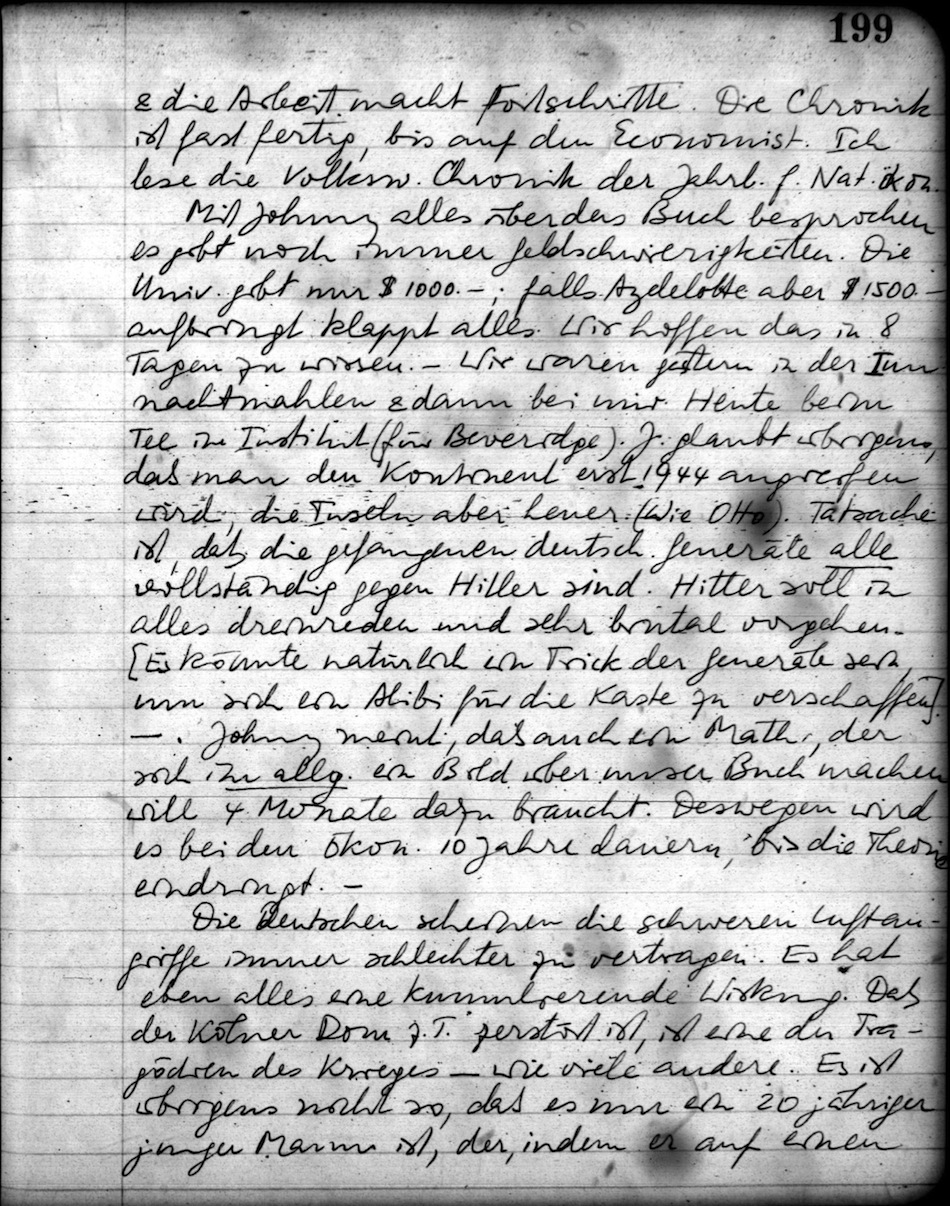 199
& die Arbeit macht Fortschritte. Die Chronik
ist fast fertig, bis auf den Economist. Ich
lese die Volksw. Chronik der Jahrb. f. Nat.ökon.
Mit Johnny alles über das Buch besprochen
es gibt noch immer Geldschwierigkeiten. Die
Univ. gibt nur $ 1000.–; falls Aydelotte aber $ 1500.–
aufbringt klappt alles. Wir hoffen das in 8
Tagen zu wissen. – Wir waren gestern in der Inn
nachtmahlen & dann bei mir. Heute beim
Tee im Institut (für Beveridge). J. glaubt übrigens,
das man den Kontinent erst 1944 angreifen
wird, die Inseln aber heuer. (Wie Otto). Tatsache
ist, daß die gefangenen deutsch. Generäle alle
vollständig gegen Hitler sind. Hitler soll in
alles dreinreden und sehr brutal vorgehen.
[Es könnte natürlich ein Trick der Generäle sein,
um sich ein Alibi für die Kaste zu verschaffen].
– . Johnny meint, daß auch ein Math., der
sich im allg. ein Bild über unser Buch machen
will 4 Monate dazu braucht. Deswegen wird
es bei den Ökon. 10 Jahre dauern, bis die Theorie
eindringt. –
Die Deutschen scheinen die schweren Luftan-
griffe immer schlechter zu vertragen. Es hat
eben alles eine kummulierende Wirkung. Daß
der Kölner Dom z.T. zerstört ist, ist eine der Tra-
gödien des Krieges – wie viele andere. Es ist
übrigens nicht so, daß es nur ein 20 jähriger
junger Mann ist, der, indem er auf einen